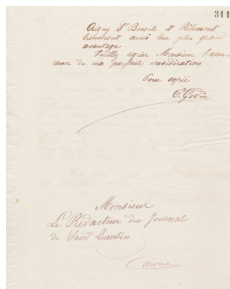 311
Origny St Benoite et Ribemont
trouveront aussi leur plus grand
avantage.
Veuillez agréer Monsieur l'assu
rance de ma parfaite considération
Pour copie
Godin
Monsieur
Le Rédacteur du Journal
de Saint Quentin
Aisne